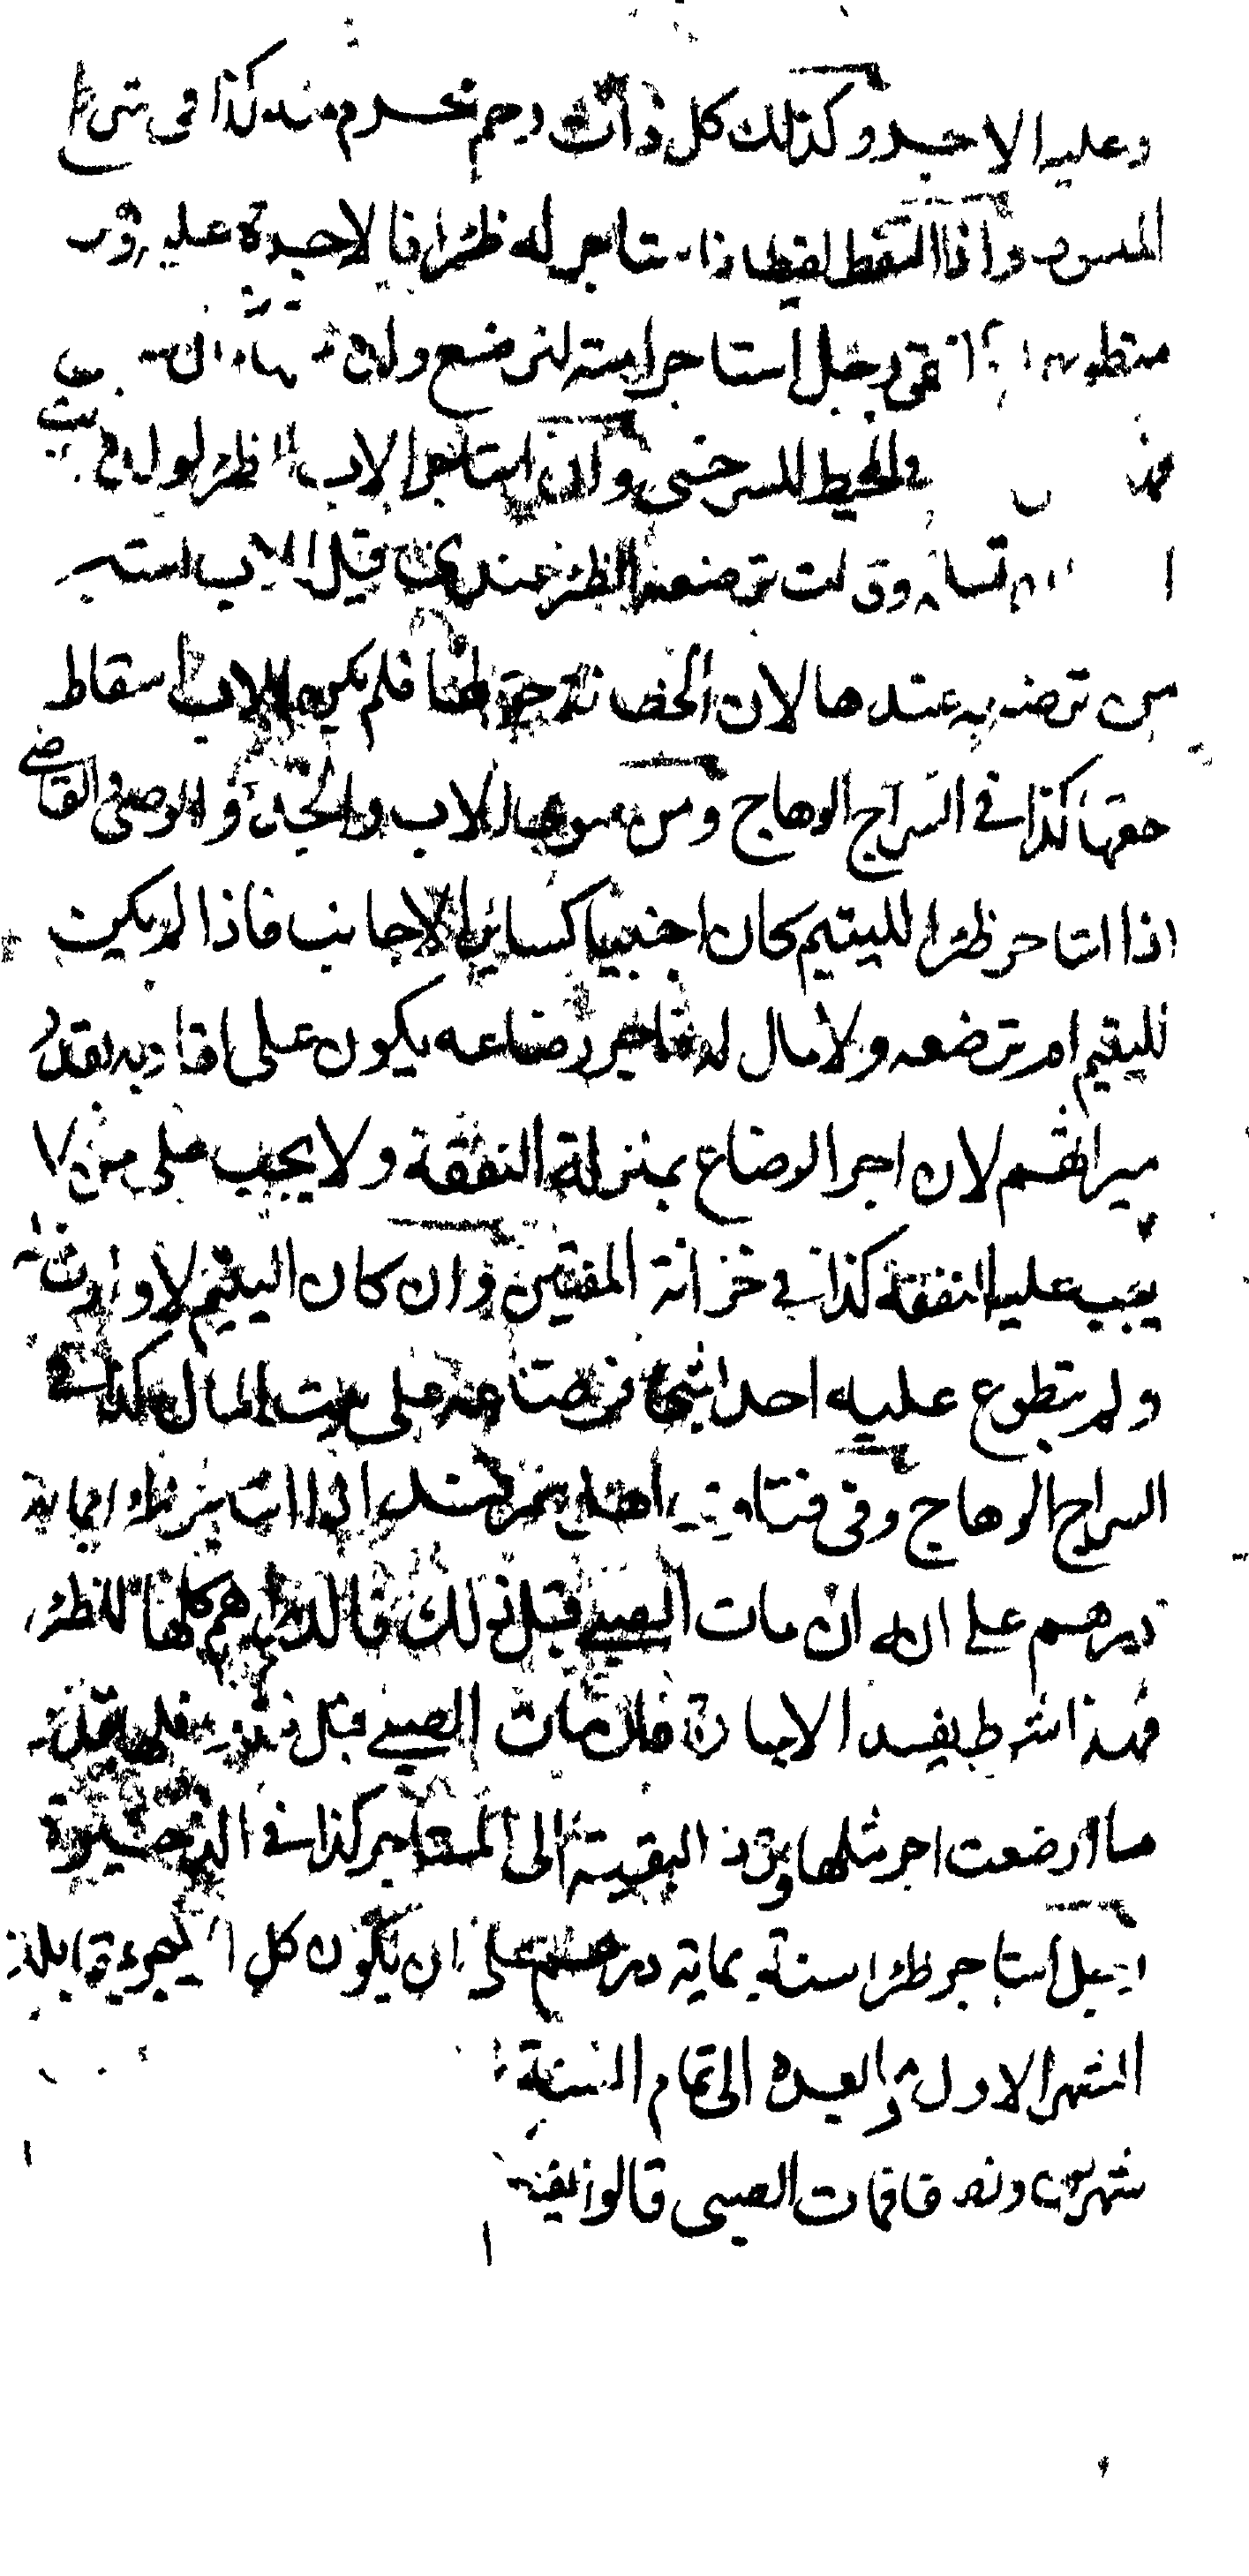 وعليه الاجر وكذلك كل ذات رحم محرم منه كذا في
المبسوط واذا التقط لقيطا فاستاجر له ظئرا فالاجرة عليه وهو
متطوع رجل استاجر امته لترضع ولده
فهذا في المحيط للسرخسي وان استاجر الاب الظئر لولده
وقالت ترضعه الظئر عندي قيل للاب استاجر
من ترضعه عندها لان الحضانة حق لها فلم يكن للاب اسقاط
حقها كذا في السراج الوهاج ومن سوى الاب والجد والوصي والقاضي
اذا استاجر ظئرا لليتيم كان اجنبيا كسائر الاجانب فاذا لم يكن
لليتيم ام ترضعه ولا مال له فاجر رضاعه يكون على اقاربه بقدر
ميراثهم لان اجر الرضاع بمنزلة النفقة ولا يجب على من لا
يجب عليه النفقة كذا في خزانة المفتين وان كان اليتيم لا وارث له
ولم يتطوع عليه احد بشئ فرضاعه على بيت المال كذا في
السراج الوهاج وفي فتاوى اهل سمرقند اذا استاجر ظئرا بمائة
درهم على انه ان مات الصبي قبل ذلك فالدراهم كلها للظئر
فهذا شرط يفسد الاجارة فان مات الصبي قبل ذلك فلها بقدر
ما ارضعت اجر مثلها وترد البقية الى المستاجر كذا في الذخيرة
رجل استاجر ظئرا سنة بماية درهم على ان يكون كل الاجر بمقابلة
الشهر الاول وما بعده الى تمام السنة
شهرين ونصفا فمات الصبي قالوا